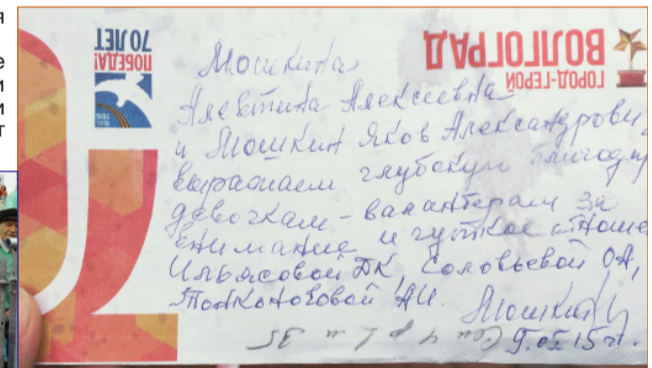 я
е
и
и
т
ГОРОД-ГЕРОЙ
ВОЛГОГРАД
ПОБЕДА!
70 ЛЕТ
Мошкина
Алевтина Алексеевна
и Мошкин Яков Александрови
выражаем глубокую благодар
девочкам – валантерам за
внимание и чуткое отноше
Ильясовой ДК, Соловьевой ОА,
Тонконоговой АИ. Мошкин
9.05.15 г.